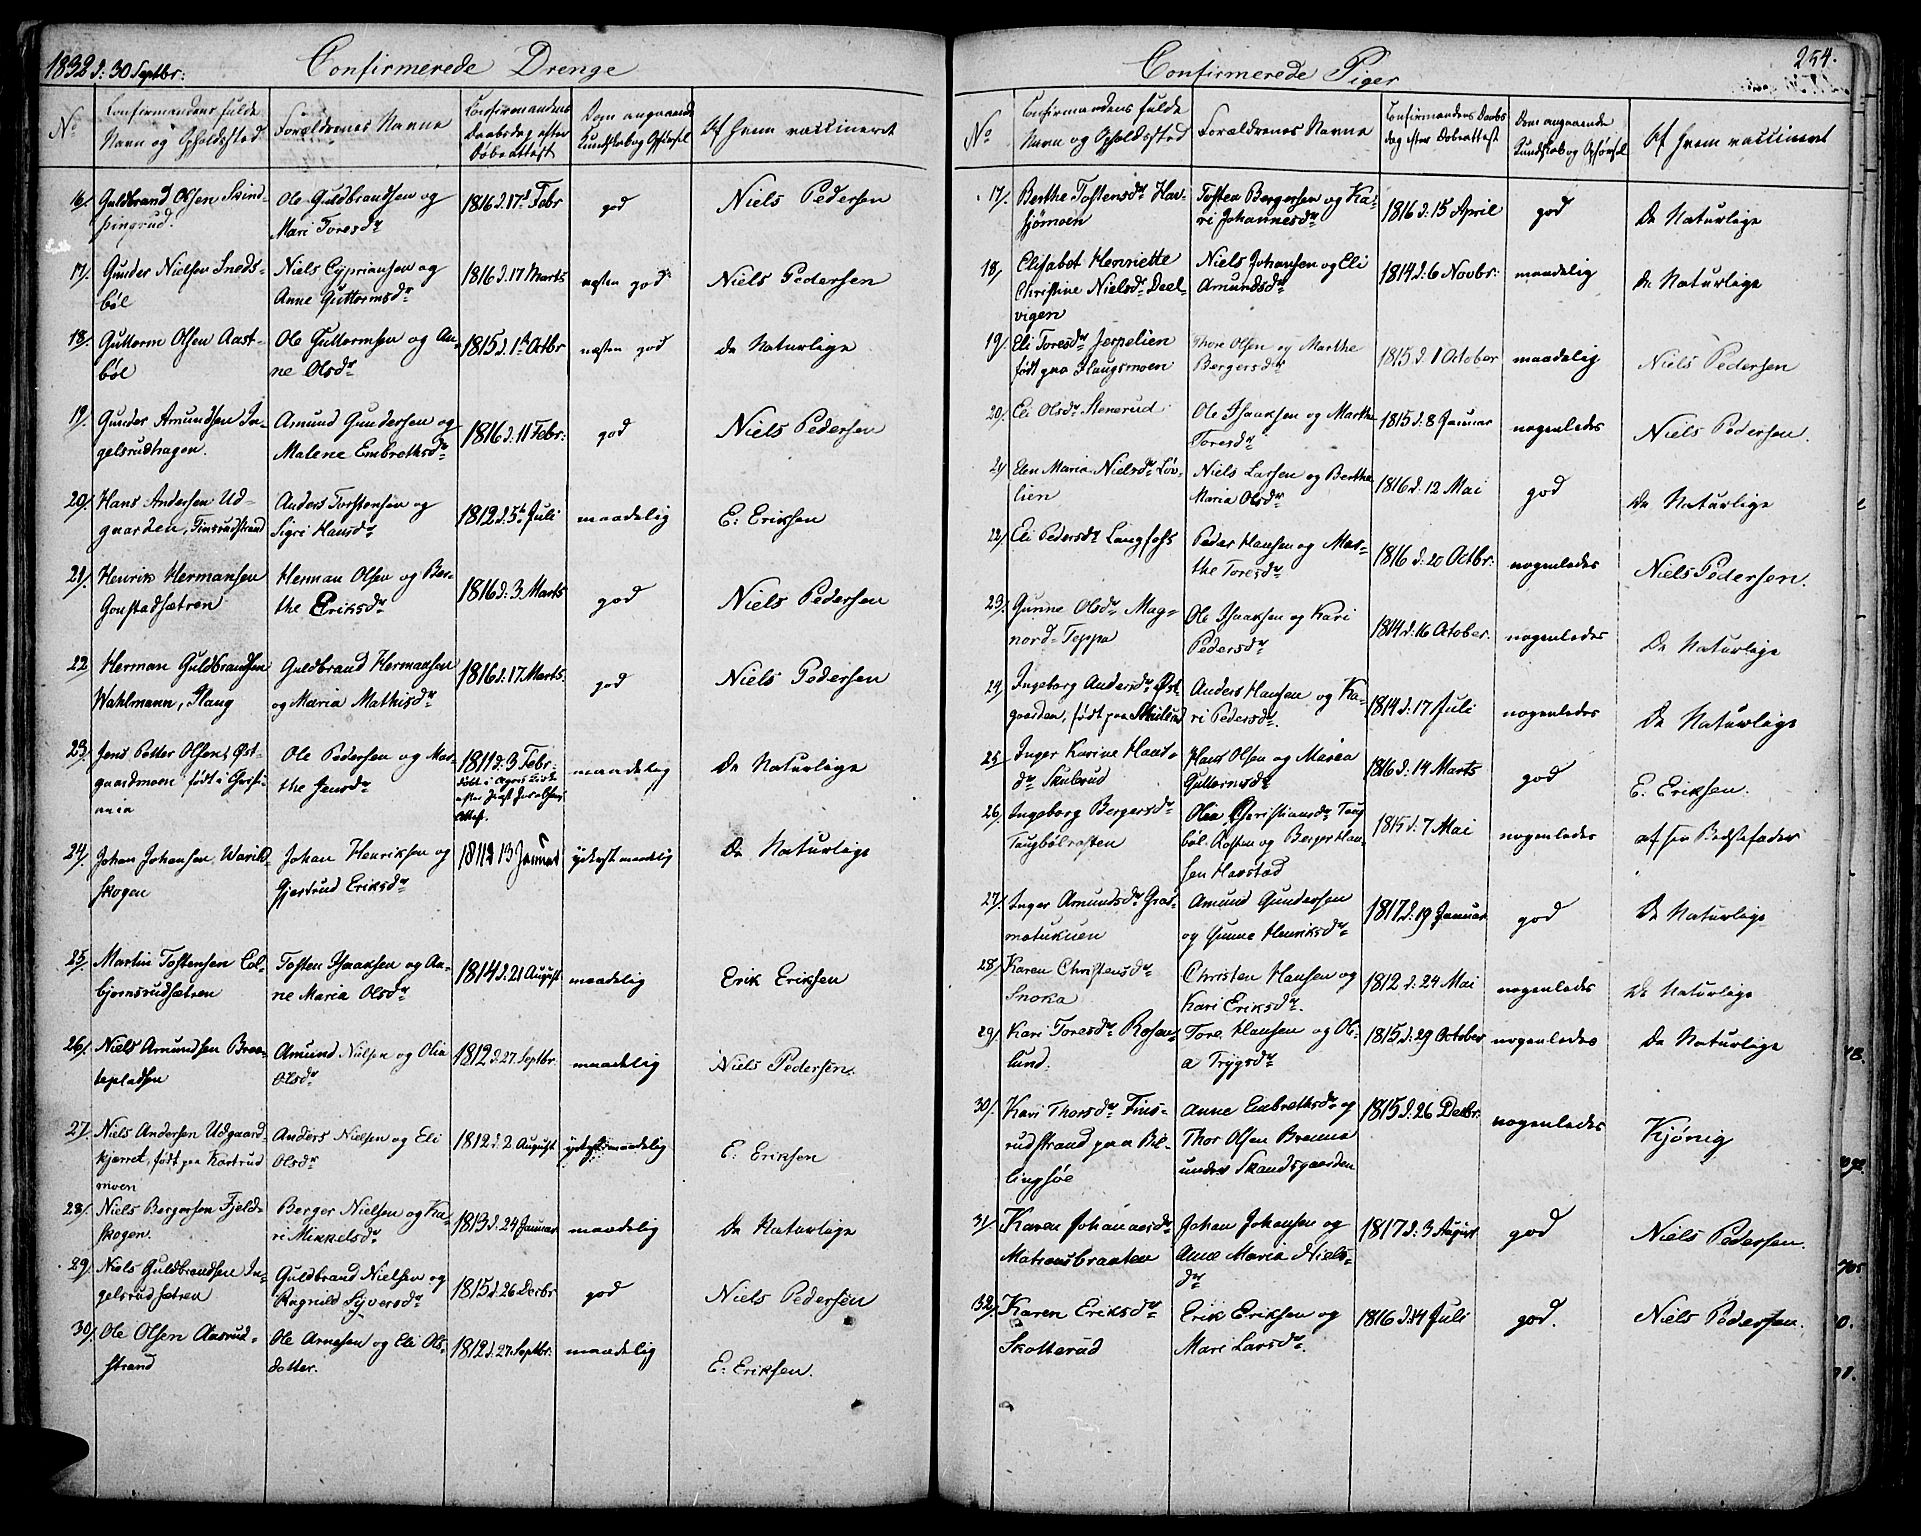 1832 d: 30 Septbr:
Confirmerede Drenge
No
Confirmandens fulde
Navn og Opholdssted
Forældrenes Navne
Confirmandens
Daabsdag efter
Döbeattest
Dom angaaende
Kundskab og Opförsel
Af hvem vaccineret
16/. Guldbrand Olsen Skind-
pingrud.
Ole Guldbrandsen og
Mari Toresdr
1816 d. 17d Febr
god
Niels Pedersen
17/. Gunder Nielsen Sneds-
böl
Niels Cypriansen og
Anne Guttormsdr
1816 d. 17 Marts
næsten god
Niels Pedersen
18/. Guttorm Olsen Aast-
böl
Ole Guttormsen og An-
ne Olsdr
1815 d. 1te Octbr
næsten god
De Naturlige
19/. Gunder Amundsen In-
gelsrudhagen.
Amund Gundersen og
Malene Embrethsdr
1816 d: 11 Febr:
god
Niels Pedersen
20/. Hans Andersen Ud-
gaarden, Finsrudstrand
Anders Torstensen og
Sigri Hansdr
1812 d. 5te Juli
maadelig
E: Eriksen
21/. Henrik Hermansen
Gonstadsætren
Herman Olsen og Ber-
the Eriksdr
1816 d: 3 Marts
god
Niels Pedersen
22 Herman Guldbrandsen
Wahlmann, Haug
Guldbrand Hermansen
og Maria Mathisdr
1816 d: 17 Marts.
god
Niels Pedersen
23. Jens Petter Olsen, Øst-
gaardmoen födt i Christi-
ania
Ole Pedersen og Mar-
the Jensdr
1811 d: 3 Febr:
Attest.
maadelig
De Naturlige
24/. Johan Johansen, Warild-
skogen
Johan Henriksen og
Gjertrud Eriksdr
13 Januar
yderst maadelig
De Naturlige
25/. Martin Tostensen Col-
bjørnsrudsætren
Tosten Isaaksen og An-
ne Maria Olsdr
1814 d. 21 August
maadelig
Erik Eriksen
26/. Niels Amundsen Braa-
tepladsen
Amund Nielsen og Olia
Olsdr
1812 d. 27. Septbr
maadelig
Niels Pedersen.
27. Niels Andersen Udgaard-
kjerret, födt paa Kastrud
moen
Anders Nielsen og Eli
Olsdr
1812 d: 2 August
yderst maadelig
E: Eriksen
28/. Niels Bergersen Fjeld-
skogen.
Berger Nielsen og Ka-
ri Mikkelsdr
1813 d. 24 Januar
maadelig
De Naturlige
29. Niels Guldbrandsen In-
gelsrudsætren
Guldbrand Nielsen og
Ragnild Syversdr
1815 d: 26 Decbr
god
Niels Pedersen
30/. Ole Olsen Aasrud-
strand
Ole Arnesen og Eli Ols-
datter.
1812 d: 27 Septbr:
maadelig
E: Eriksen.
254.
Confirmerede Piger
No
Confirmandens fulde
Navn og Opholdssted
Forældrenes Navne
Confirmandens Daabs-
dag efter Döbeattest
Dom angaaende
Kundskab og Opförsel
Af hvem vaccineret
17/. Berthe Tostensdr Hav-
sjömoen
Tosten Bergersen og Ka-
ri Johannesdr
1816 d: 15 April
god
De Naturlige
18/. Elisabet Henriette
Christine Nielsdr Deel-
vigen
Niels Johansen og Eli
Amundsdr
1814 d: 6 Novbr:
maadelig
De Naturlige
19/. Eli Toresdr Jerpelien
födt paa Haugsmoen
Thore Olsen og Marthe
Bergersdr
1815 d. 1 October
maadelig
Niels Pedersen
20/. Eli Olsdr Stenerud
Ole Isaaksen og Marthe
Toresdr
1815 d: 8 Januar
nogenledes
Niels Pedersen.
21 Elen Maria Nielsdr Löv-
lien
Niels Larsen og Berthe
Maria Olsdr
1816 d: 12 Mai
god
De Naturlige
22/. Eli Pedersdr Langsohs
Peder Hansen og Mar-
the Toresdr
1816 d: 20 Octbr:
nogenledes
Niels Pedersen.
23/. Gunne Olsdr Mag-
nord-Teppa
Ole Isaaksen og Kari
Pedersdr
1814 d: 16 October.
nogenledes
De Naturlige
24/. Ingeborg Andersdr Øst-
gaarden, födt paa Skulerud
Anders Hansen og Ka-
ri Pedersdr.
1814 d: 17 Juli
nogenledes
De Naturlige
25. Inger Karine Hans-
dr Skulerud
Hans Olsen og Maria
Guttormsdr
1816 d: 14 Marts
god
E. Eriksen.
26. Ingeborg Bergersdr
Taugbölrosten
Olea Christiansdr Taug-
böl-Rosten og Berger Han-
sen Harstad
1815 d: 7 Mai
nogenledes
af sin Bedstefader
27/. Inger Amundsdr Gras-
motukuen
Amund Gundersen
og Gunne Henriksdr
1817 d: 19 Januar
god
De Naturlige
28/. Karen Christensdr
Snoka
Christen Hansen og
Kari Eriksdr.
1812 d: 24 Mai
nogenledes
De Naturlige
29/. Kari Toresdr Rosen-
lund.
Tore Hansen og Ol-
a Trygsdr
1815 d: 29 October
nogenledes
De Naturlige
30/. Kari Thorsdr Fins-
rudstrand paa Bil-
lingsöe
Anne Embrethsdr og
Thor Olsen Brenna
under Skandsgaarden
1815 d: 26 Decbr:
nogenledes
Kjönig
31/. Karen Johannesdr
Matrandbraaten
Johan Johansen og
Anne Maria Niels-
dr
1817 d: 3 August
god
Niels Pedersen.
32/. Karen Eriksdr
Skotterud
Erik Eriksen og
Mari Larsdr.
1816 d. 14 Juli
god.
Niels Pedersen.